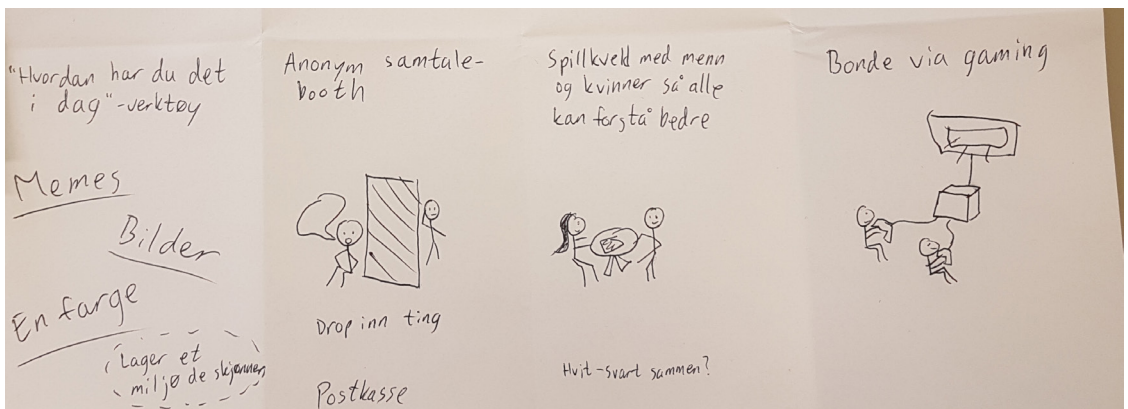 "Hvordan har du det
i dag"-verktøy
Memes
Bilder
En farge
Lager et
miljø de skjønner
Anonym samtale-
booth
Drop inn ting
Postkasse
Spillkveld med menn
og kvinner så alle
kan forstå bedre
Hvit-svart sammen?
Bonde via gaming